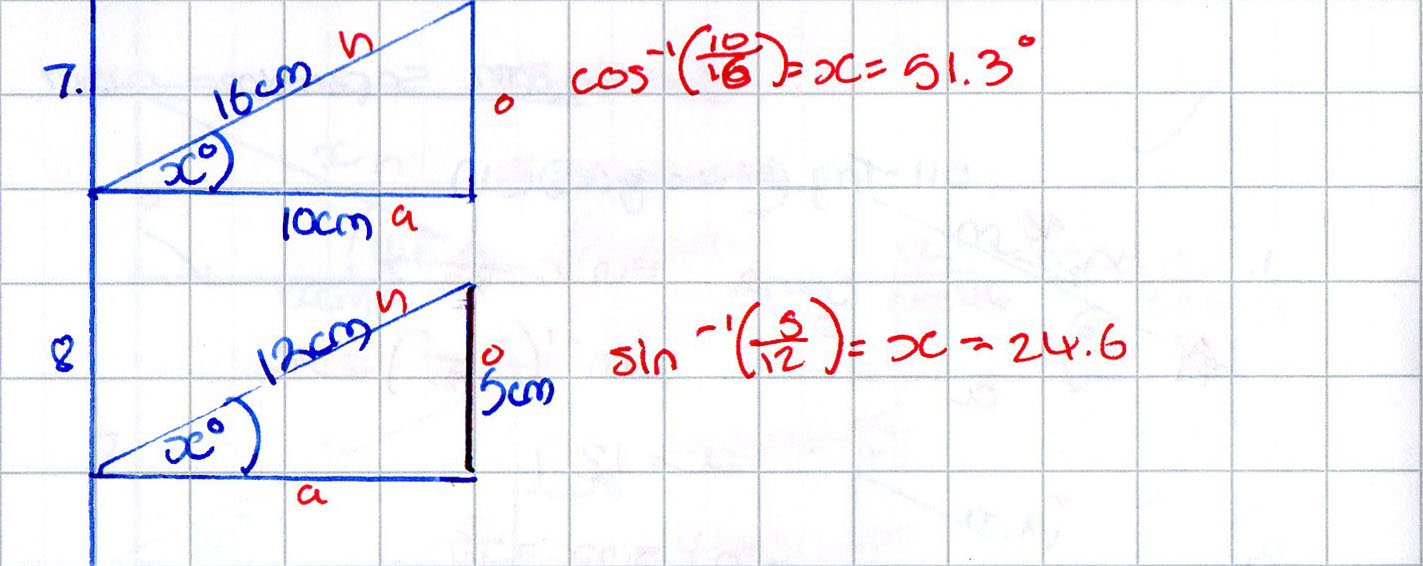 7.
16cm h
x°
10cm a
o
cos⁻¹(10/16)=x=51.3°
8
12cm h
x°
o
5cm
a
sin⁻¹(5/12)=x=24.6